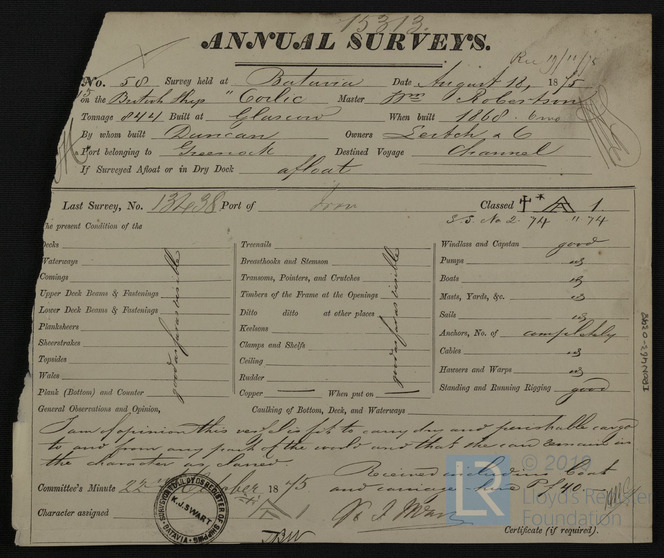 15313.
ANNUAL SURVEYS.
No. 58 Survey held at Batavia Date August 18, 1875
on the British Ship "Corlic Master Wm Robertson
Tonnage 844 Built at Glasgow When built 1868
By whom built Duncan Owners Leitch & C
Port belonging to Greenock Destined Voyage Channel
If Surveyed Afloat or in Dry Dock afloat
Last Survey, No. 13438 Port of Iron Classed A 1
S.S. No 2. 74 " 74
The present Condition of the
Decks
Waterways
Comings
Upper Deck Beams & Fastenings
Lower Deck Beams & Fastenings
Planksheers
Sheerstrakes
Topsides
Wales
Plank (Bottom) and Counter
good as far as visible
Treenails
Breasthooks and Stemson
Transoms, Pointers, and Crutches
Timbers of the Frame at the Openings
Ditto ditto at other places
Keelsons
Clamps and Shelfs
Ceiling
Rudder
Copper When put on
good as far as visible
Windlass and Capstan good
Pumps
Boats
Masts, Yards, &c.
Sails
Anchors, No. of completely
Cables
Hawsers and Warps
Standing and Running Rigging good
General Observations and Opinion, Caulking of Bottom, Deck, and Waterways
I am of opinion this vessel is fit to carry dry and perishable cargo
to and from any part of the world and that she can remain in
the character as
Committee's Minute 22nd October 1875
Received Boat
and carriage hire
Character assigned A 1
Certificate (if required).
SURVEYOR TO LLOYDS REGISTER OF SHIPPING
K.J. SWART
BATAVIA
© 2019
LR
Lloyd's Register
Foundation
IRON492-0298